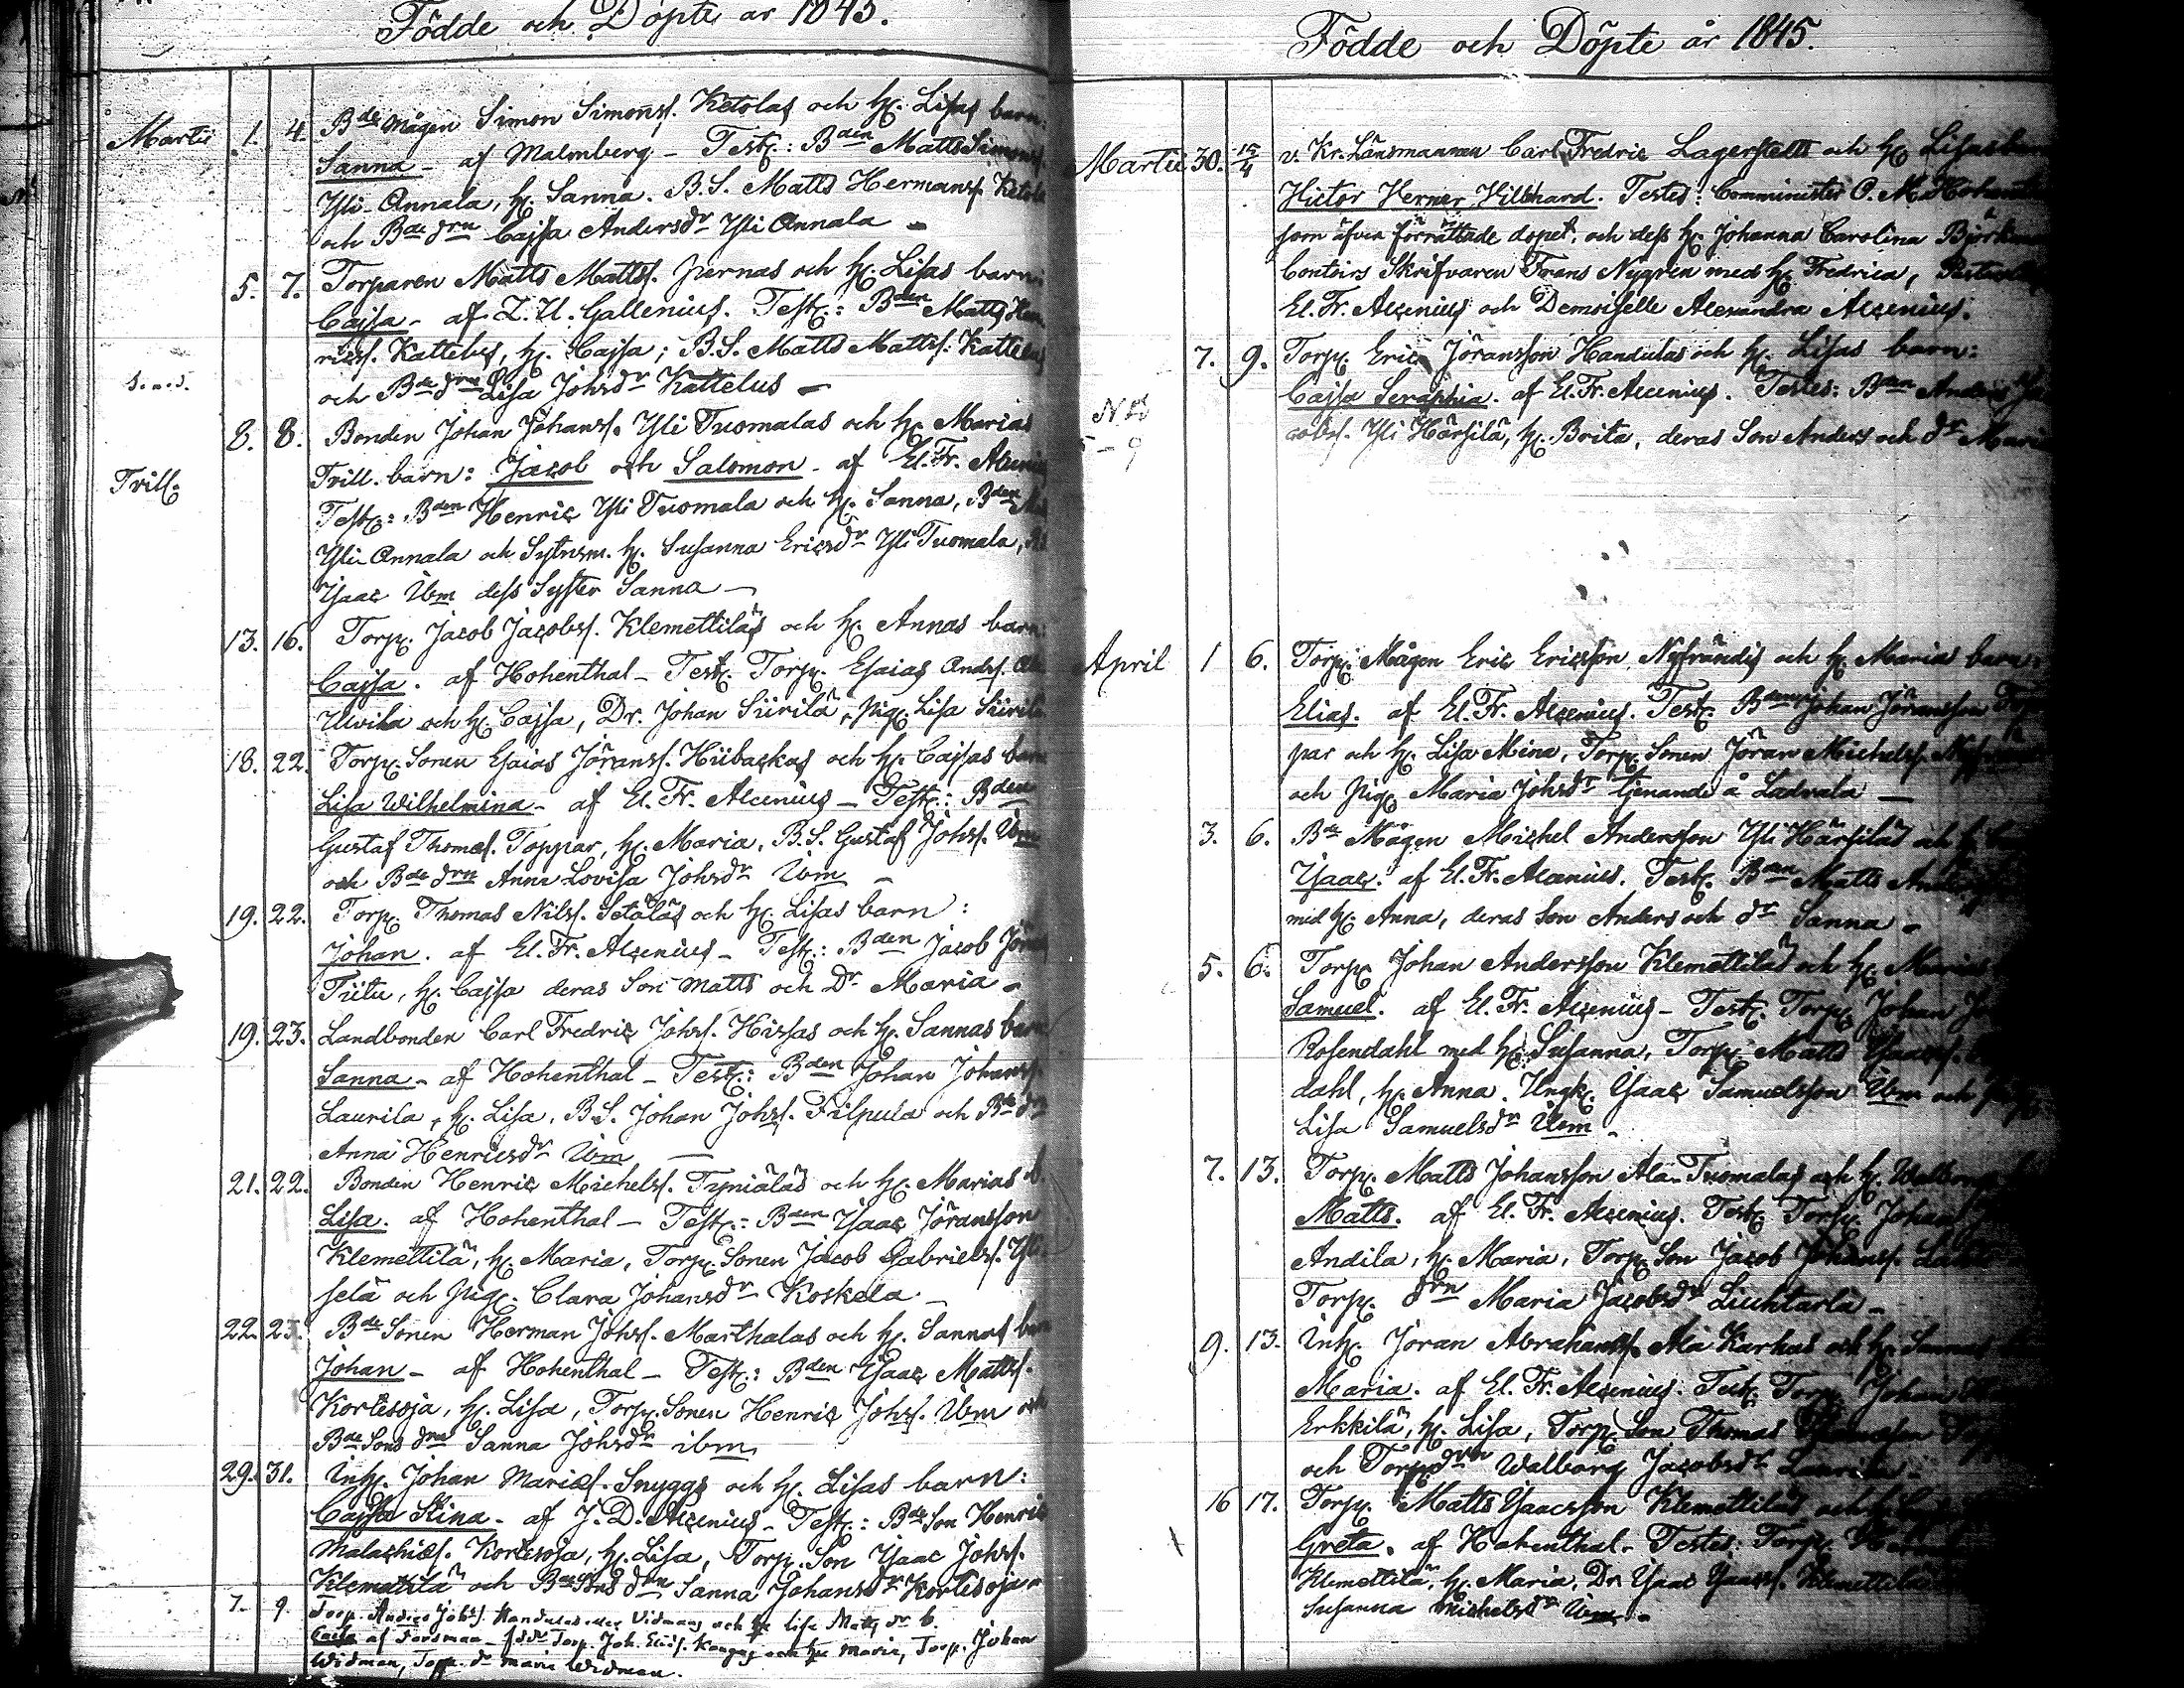 Födde och Döpte år 1845.
Martii 1. 4. Bde mågen Simon Simonss. Ketolas och h. Lisas barn:
Sanna - af Malmberg - Test: Bden Matts Simonss.
Yli-Annala, h. Sanna. B.S. Matts Hermanss. Ketola
och Bde drn Cajsa Andersdr Yli Annala -
5. 7. Torparen Matts Mattss. Pernas och h. Lisas barn:
Cajsa - af Z. U. Gallenius. Test: Bden Matts Hen
ricss. Kattelus, h. Cajsa; B.S. Matts Mattss. Kattelus
s. a. d.
och Bde drn Lisa Johsdr Kattelus -
8. 8. Bonden Johan Johanss. Yli Tuomalas och h. Marias
Trill. Trill. barn: Jacob och Salomon - af El. Fr. Alcenius
Test: Bden Henric Yli Tuomala och h. Sanna, Bden
Yli-Annala och Sytnsm. h. Susanna Ericsdr Yli Tuomala,
Isaac Ibm dess Syster Sanna -
13. 16. Torp. Jacob Jacobss. Klemettiläs och h. Annas barn:
Cajsa. af Hohenthal - Test. Torp. Esaias Andss.
Ulvila och h. Cajsa, Dr. Johan Siirilä, pig. Lisa Siirilä
18. 22. Torp. Sonen Esaias Jöranss. Hiibackas och h. Cajsas barn
Lisa Wilhelmina - af El. Fr. Alcenius - Test: Bden
Gustaf Thomæs. Toppar, h. Maria, B.S. Gustaf Johss. Ibm
och Bde drn Anna Lovisa Johsdr Ibm -
19. 22. Torp. Thomas Nilss. Setäläs och h. Lisas barn:
Johan. af El. Fr. Alcenius - Test: Bden Jacob
Tiitu, h. Cajsa deras Son Matts och Dr Maria -
19. 23. Landbonden Carl Fredric Johss. Hissas och h. Sannas barn
Sanna - af Hohenthal - Test: Bden Johan Johanss.
Laurila, h. Lisa, B.S. Johan Johss. Filpula och Bde drn
Anna Henricsdr Ibm -
21. 22. Bonden Henric Michelss. Tyniäläs och h. Marias b.
Lisa. af Hohenthal - Test: Bden Isaac Jöransson
Klemettilä, h. Maria, Torp. Sonen Jacob Gabrielss. Yli
selä och pig. Clara Johansdr Koskela -
22. 23. Bde Sonen Herman Johss. Marthalas och h. Sannas barn
Johan - af Hohenthal - Test: Bden Isaac Mattss.
Kortesoja, h. Lisa, Torp. Sonen Henric Johss. Ibm och
Bde Sons drn Sanna Johsdr ibm
29. 31. Inh. Johan Mariæs. Snyggs och h. Lisas barn:
Cajsa Stina - af J. D. Alcenius - Test: Bde Son Henric
Malachiæs. Kortesoja, h. Lisa, Torp. Son Isaac Johss.
Klemettilä och Bde Sons drn Sanna Johansdr Kortesoja -
7. 9. Torp. Anders Johss. Handulas eller Vidmans och h. Lisa Matts dr b.
Caisa af Forsman - fddr Torp. Joh. Eliæs. Kangas och h. Maria, Torp. Johan
Widman, Torp. dr Maria Widman.
Födde och Döpte år 1845.
Martii 30. 15/4 v. Kr. Länsmannen Carl Fredric Lagerstedts och h. Lisas
Victor Verner Villehard. Testes: Comminister O. M. Hohenthal
som äfven förrättade dopet, och dess h. Johanna Carolina
Contoirs Skrifvaren Frans Nygren med h. Fredrica,
El. Fr. Alcenius och Demoiselle Alexandra Alcenius.
7. 9. Torp. Eric Jöransson Handulas och h. Lisas barn:
Cajsa Seraphia. af El. Fr. Alcenius. Testes: Bden Anders Ja
NB 5-9
cobss. Yli Härsilä, h. Brita, deras Son Anders och dr Maria
April 1 6. Torp. Mågen Eric Ericsson Nyfrändis och h. Maria barn
Elias. af El. Fr. Alcenius. Test. Bden Johan Jöransson
par och h. Lisa Mina, Torp. Sonen Jöran Michelss.
och pig. Maria Johsdr tjenande å Ladvala -
3. 6. Bde Mågen Michel Andersson Yli Härsiläs och h.
Isaac. af El. Fr. Alcenius. Test. Bden Matts
med h. Anna, deras Son Anders och dr Sanna -
5. 6. Torp. Johan Andersson Klemettiläs och h. Marias
Samuel. af El. Fr. Alcenius - Test. Torp. Johan
Rosendahl med h. Susanna, Torp. Matts Isaacss.
dahl, h. Anna. Ungk. Isaac Samuelsson Ibm och
Lisa Samuelsdr Ibm -
7. 13. Torp. Matts Johansson Ala-Tuomalas och h. Walborgs
Matts. af El. Fr. Alcenius. Test. Torp. Johan
Andila, h. Maria, Torp. Son Jacob Johanss.
Torp. drn Maria Jacobsdr Liuhtarla -
9. 13. Inh. Jöran Abrahamss. Ala Karhus och h. Sannas
Maria. af El. Fr. Alcenius. Test. Torp. Johan
Erkkilä, h. Lisa, Torp. Son Thomas
och Torp. drn Walborg Jacobsdr Laurila -
16 17. Torp. Matts Isaacsson Klemettiläs och h.
Greta. af Hohenthal - Testes: Torp.
Klemettilä, h. Maria, Dr. Isaac Isaacss. Klemettilä
Susanna Michelsdr Ibm -